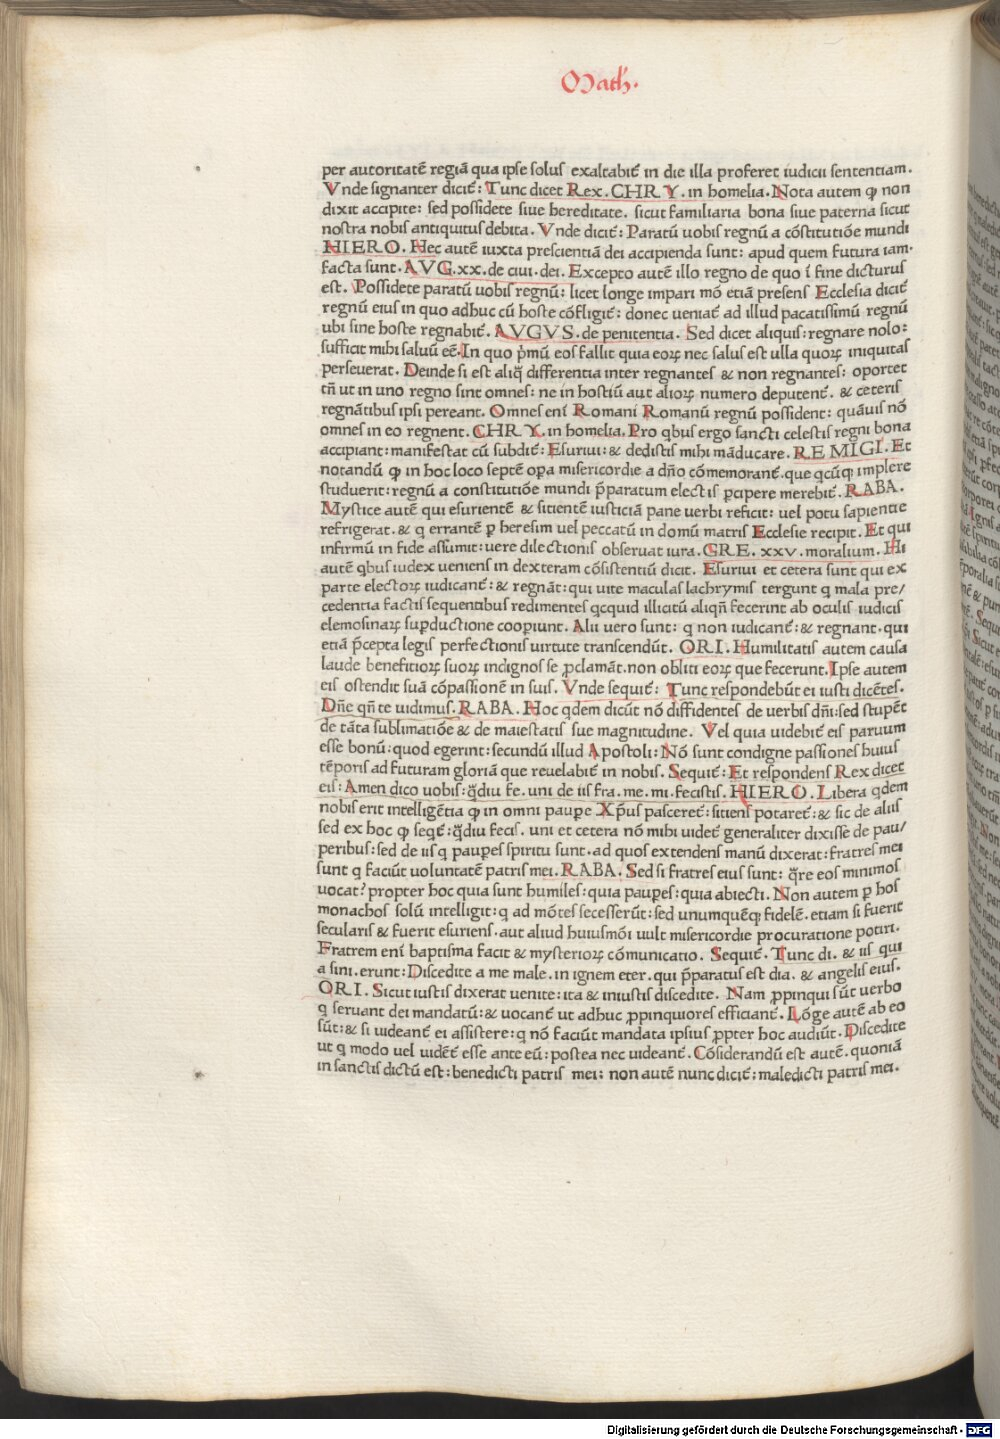 Math.
per autoritatē regiā qua ipse solus exaltabit᷑ in die illa proferet iudicii sententiam.
Vnde signanter dicit᷑: Tunc dicet Rex. CHRY. in homelia. Nota autem ꝙ non
dixit accipite: sed possidete siue hereditate. sicut familiaria bona siue paterna sicut
nostra nobis antiquitus debita. Vnde dicit᷑: Paratū uobis regnū a cōstitutiōe mundi
HIERO. Hec autē iuxta prescientiā dei accipienda sunt: apud quem futura iam
facta sunt. AVG. xx. de ciui. dei. Excepto autē illo regno de quo ī fine dicturus
est. Possidete paratū uobis regnū: licet longe impari mō etiā presens Ecclesia dicit᷑
regnū eius in quo adhuc cū hoste cōfligit᷑: donec ueniat᷑ ad illud pacatissimū regnū
ubi sine hoste regnabit᷑. AVGVS. de penitentia. Sed dicet aliquis: regnare nolo:
sufficit mihi saluū eē. In quo p̄mū eos fallit quia eoꝝ nec salus est ulla quoꝝ iniquitas
perseuerat. Deinde si est aliq̄ differentia inter regnantes & non regnantes: oportet
tn̄ ut in uno regno sint omnes: ne in hostiū aut alioꝝ numero deputent᷑. & ceteris
regnātibus ipsi pereant. Omnes enī Romani Romanū regnū possident: quāuis nō
omnes in eo regnent. CHRY. in homelia. Pro qbus ergo sancti celestis regni bona
accipiant: manifestat cū subdit᷑: Esuriui: & dedistis mihi māducare. REMIGI. Et
notandū ꝙ in hoc loco septē oꝑa misericordie a dn̄o cōmemorant᷑. que qcūqꝫ implere
studuerit: regnū a constitutiōe mundi p̄paratum electis ꝑcipere merebit᷑. RABA.
Mystice autē qui esurientē & sitientē iusticiā pane uerbi reficit: uel potu sapientie
refrigerat. & q errantē ꝑ heresim uel peccatū in domū matris Ecclesie recipit. Et qui
infirmū in fide assumit: uere dilectionis obseruat iura. GRE. xxv. moralium. Hi
autē qbus iudex ueniens in dexteram cōsistentiū dicit. Esuriui et cetera sunt qui ex
parte electoꝝ iudicant᷑: & regnāt: qui uite maculas lachrymis tergunt q mala pre/
cedentia factis sequentibus redimentes qcquid illicitū aliqn̄ fecerint ab oculis iudicis
elemosinaꝝ suꝑductione cooꝑiunt. Alii uero sunt: q non iudicant᷑: & regnant. qui
etiā p̄cepta legis perfectionis uirtute transcendūt. ORI. Humilitatis autem causa
laude benefitioꝝ suoꝝ indignos se ꝓclamāt. non obliti eoꝝ que fecerunt. Ipse autem
eis ostendit suā cōpassionē in suis. Vnde sequit᷑: Tunc respondebūt ei iusti dicētes.
Dn̄e qn̄ te uidimus. RABA. Hoc qdem dicūt nō diffidentes de uerbis dn̄i: sed stupēt
de tāta sublimatiōe & de maiestatis sue magnitudine. Vel quia uidebit᷑ eis paruum
esse bonū: quod egerint: secundū illud Apostoli: Nō sunt condigne passiones huius
tēporis ad futuram gloriā que reuelabit᷑ in nobis. Sequit᷑: Et respondens Rex dicet
eis: Amen dico uobis: q̄diu fe. uni de iis fra. me. mi. fecistis. HIERO. Libera qdem
nobis erit intelligētia ꝙ in omni pauꝑe Xp̄us pasceret᷑: sitiens potaret᷑: & sic de aliis
sed ex hoc ꝙ seqt᷑: q̄diu fecis. uni et cetera nō mihi uidet᷑ generaliter dixisse de pau/
peribus: sed de iis q pauꝑes spiritu sunt. ad quos extendens manū dixerat: fratres mei
sunt q faciūt uoluntatē patris mei. RABA. Sed si fratres eius sunt: q̄re eos minimos
uocat? propter hoc quia sunt humiles: quia pauꝑes: quia abiecti. Non autem ꝑ hos
monachos solū intelligit: q ad mōtes secesserūt: sed unumquēqꝫ fidelē. etiam si fuerit
secularis & fuerit esuriens. aut aliud huiusmōi uult misericordie procuratione potiri.
Fratrem enī baptisma facit & mysterioꝝ cōmunicatio. Sequit᷑. Tunc di. & iis qui
a sini. erunt: Discedite a me male. in ignem eter. qui p̄paratus est dia. & angelis eius.
ORI. Sicut iustis dixerat uenite: ita & iniustis discedite. Nam ꝓpinqui sūt uerbo
q seruant dei mandatū: & uocant᷑ ut adhuc ꝓpinquiores efficiant᷑. Lōge autē ab eo
sūt: & si uideant᷑ ei assistere: q nō faciūt mandata ipsius ꝓpter hoc audiūt. Discedite
ut q modo uel uidēt᷑ esse ante eū: postea nec uideant᷑. Cōsiderandū est autē. quoniā
in sanctis dictū est: benedicti patris mei: non autē nunc dicit᷑: maledicti patris mei.
Digitalisierung gefördert durch die Deutsche Forschungsgemeinschaft - DFG